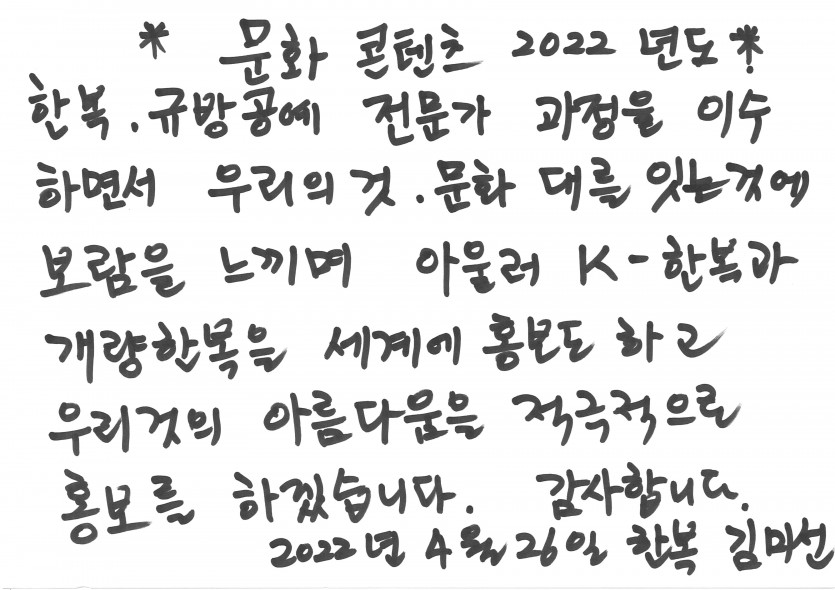 * 문화 콘텐츠 2022 년도 *
한복.규방공예 전문가 과정을 이수
하면서 우리의 것.문화 대를 잇는것에
보람을 느끼며 아울러 K-한복과
개량한복을 세계에 홍보도 하고
우리것의 아름다움을 적극적으로
홍보를 하겠습니다. 감사합니다.
2022년 4월 26일 한복 김미선